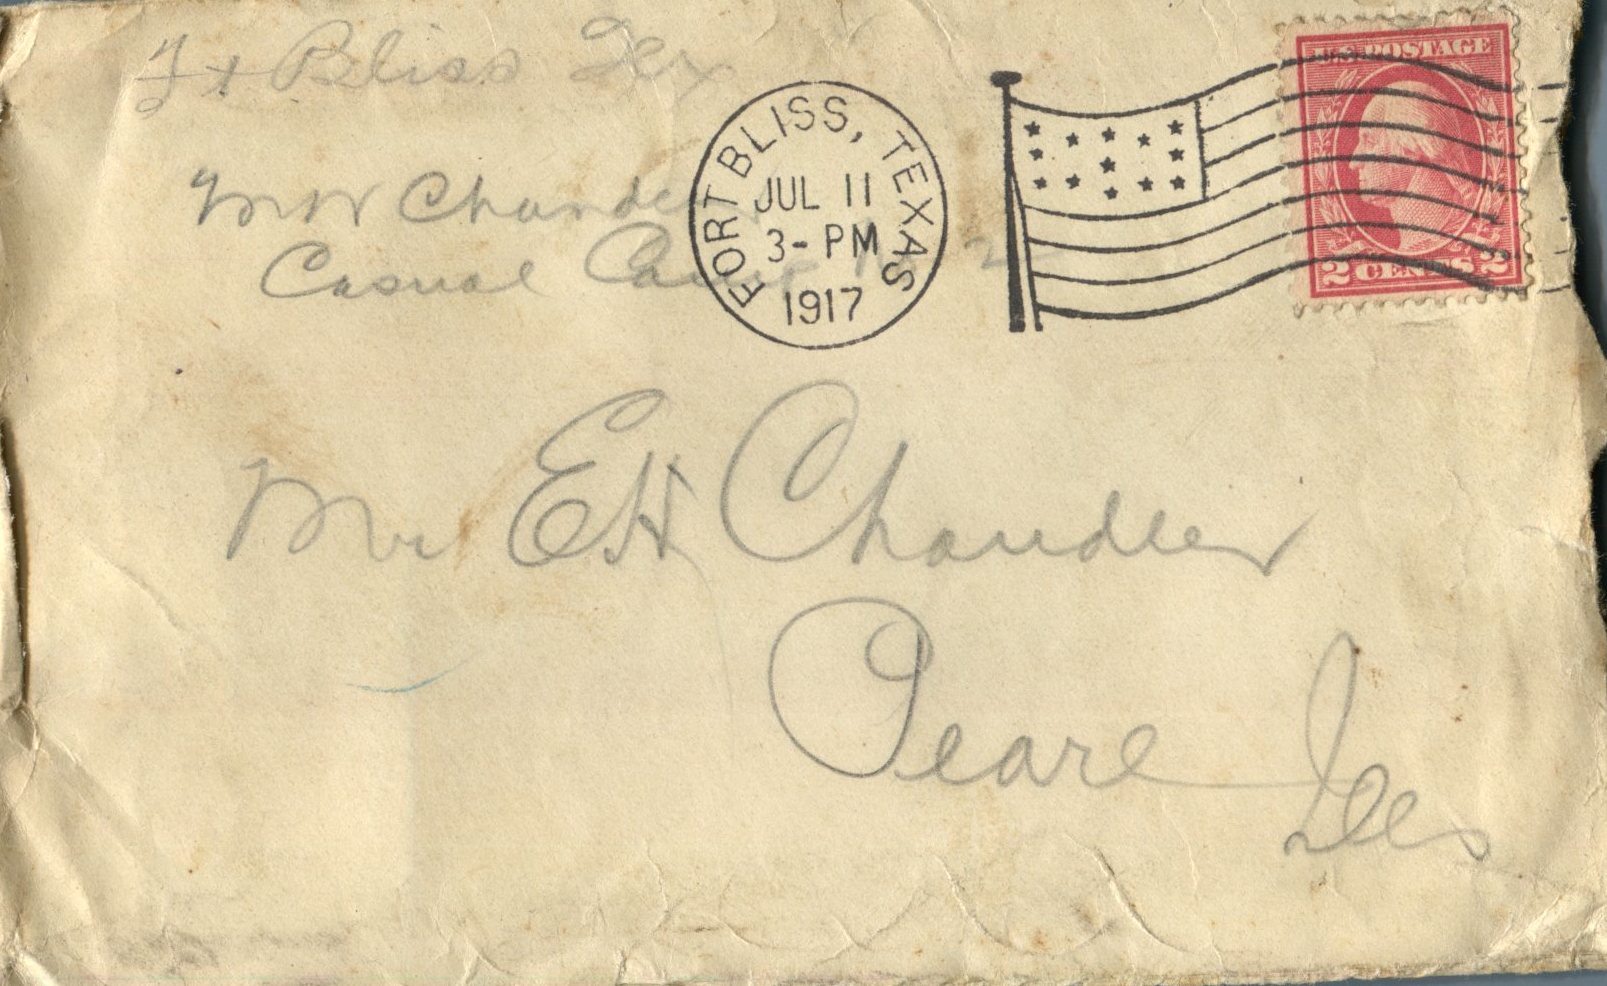 Ft Bliss Tex
M W Chandler
Casual Camp 2
FORT BLISS, TEXAS
JUL 11
3-PM
1917
U.S. POSTAGE
2 CENTS 2
Mr E H Chandler
Pearl
Ills